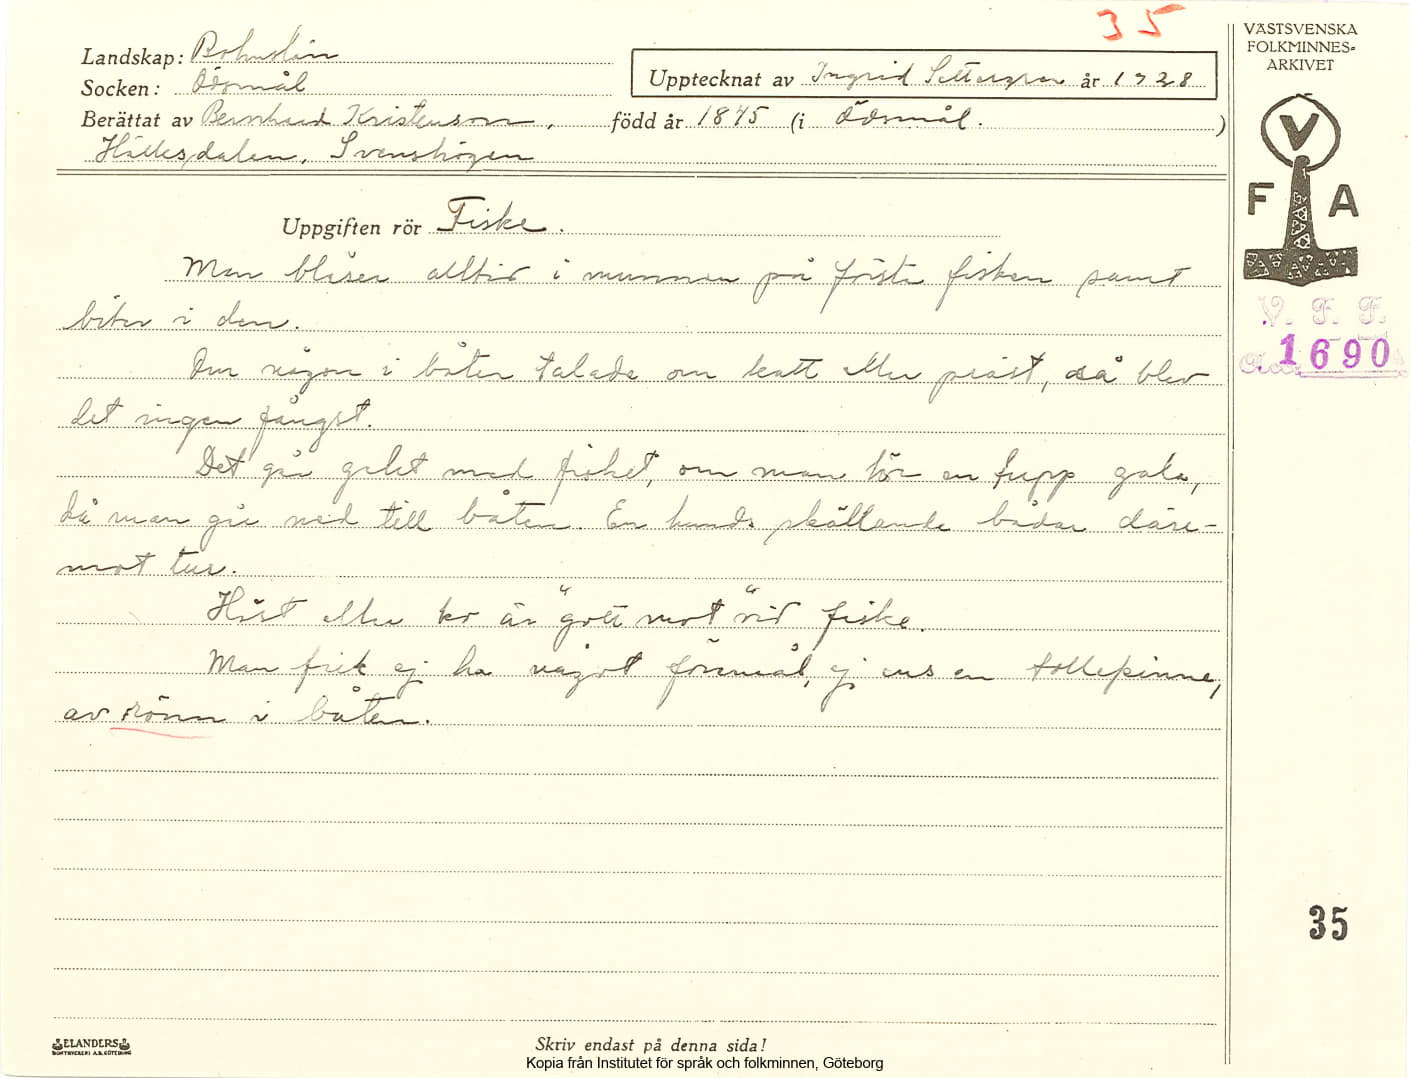 35
Landskap: Bohuslän
Socken: Ödsmål
Upptecknat av Ingrid Settergren år 1928
Berättat av Bernhard Kristenson, född år 1845 (i Ödsmål.)
Hällesdalen, Svenshögen
Uppgiften rör Fiske.
Man blåser alltid i munnen på första fisken samt
biter i den.
Om någon i båten talade om katt eller präst, så blev
det ingen fångst.
Det går galet med fisket, om man hör en tupp gala,
då man går ned till båten. En hunds skällande bådar däre-
mot tur.
Häst eller ko är "gott mot" vid fiske.
Man fick ej ha något föremål, ej ens en tollepinne,
av rönn i båten.
VÄSTSVENSKA
FOLKMINNES-
ARKIVET
V
F A
V. F. F.
Acc. 1690
35
ELANDERS
BOKTRYCKERI A.B. GÖTEBORG
Skriv endast på denna sida!
Kopia från Institutet för språk och folkminnen, Göteborg